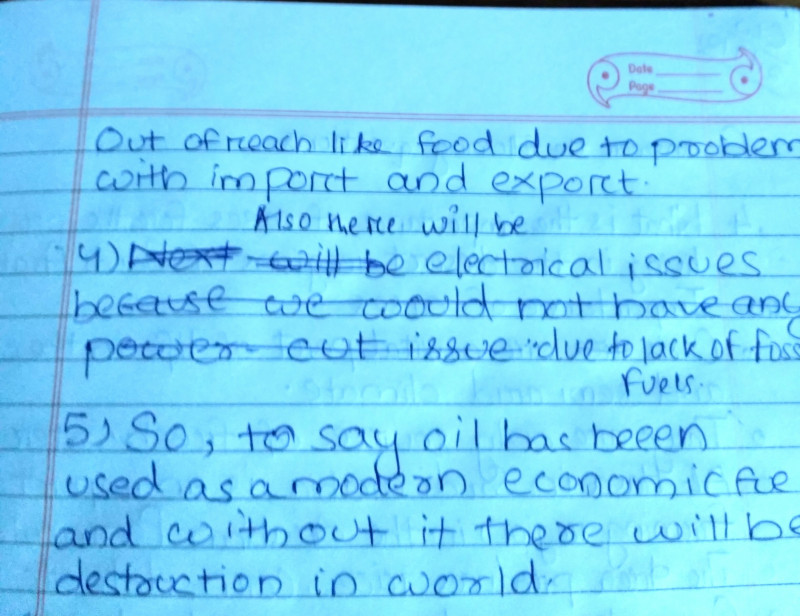 Date
Page
Out of reach like food due to problem
with import and export.
Also there will be
4) Next will be electrical issues
because we would not have any
power cut issue due to lack of foss
fuels.
5) So, to say oil has beeen
used as a modern economic fue
and without it there will be
destruction in world.